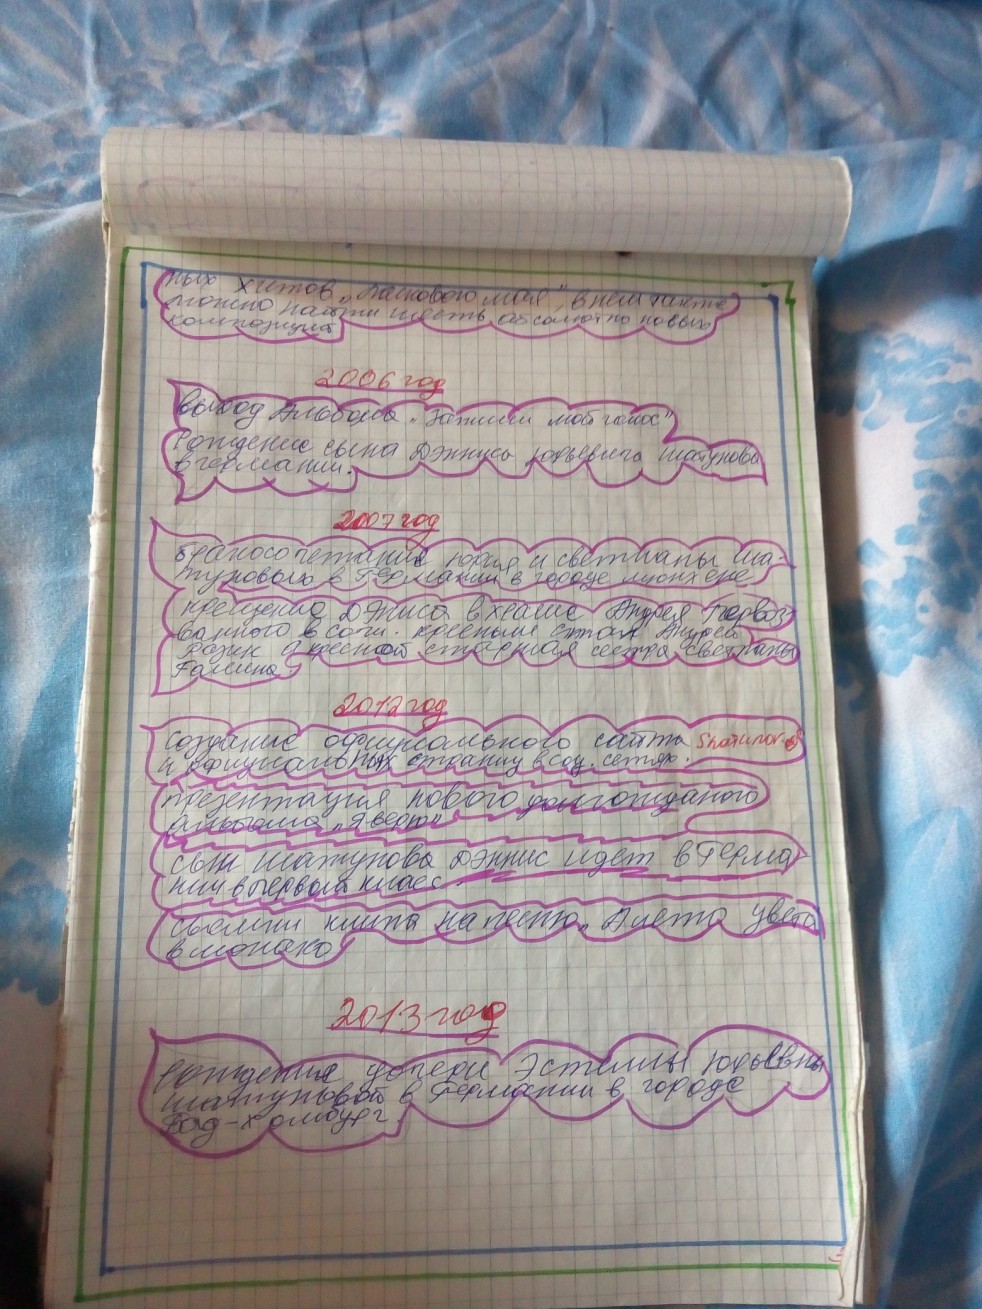 ных хитов „Ласкового мая", в нём также
можно найти шесть абсолютно новых
композиций
2006 год
выход Альбома „Запиши мой голос"
Рождение сына Дэнниса Юрьевича Шатунова
в германии.
2007 год
бракосочетания Юрия и светланы Ша-
туновых в Германии в городе мюнхене
крещение Дэниса в храме Андрея Первоз
ванного в сочи. крёсным стал Андрей
Разин а крёсной старшая сестра светланы
Галина.
2012 год
создание официального сайта Shatunov
и официальных страниц в соц. сетях.
презентация нового долгожданого
альбома „Я верю"
сын Шатунова Дэннис идет в Герма
нии в первый класс
съемки клипа на песню „А лета цвета
в монако
2013 год
рождение дочери Эстеллы Юрьевны
Шатуновой в Германии в городе
Бад-Хомбург